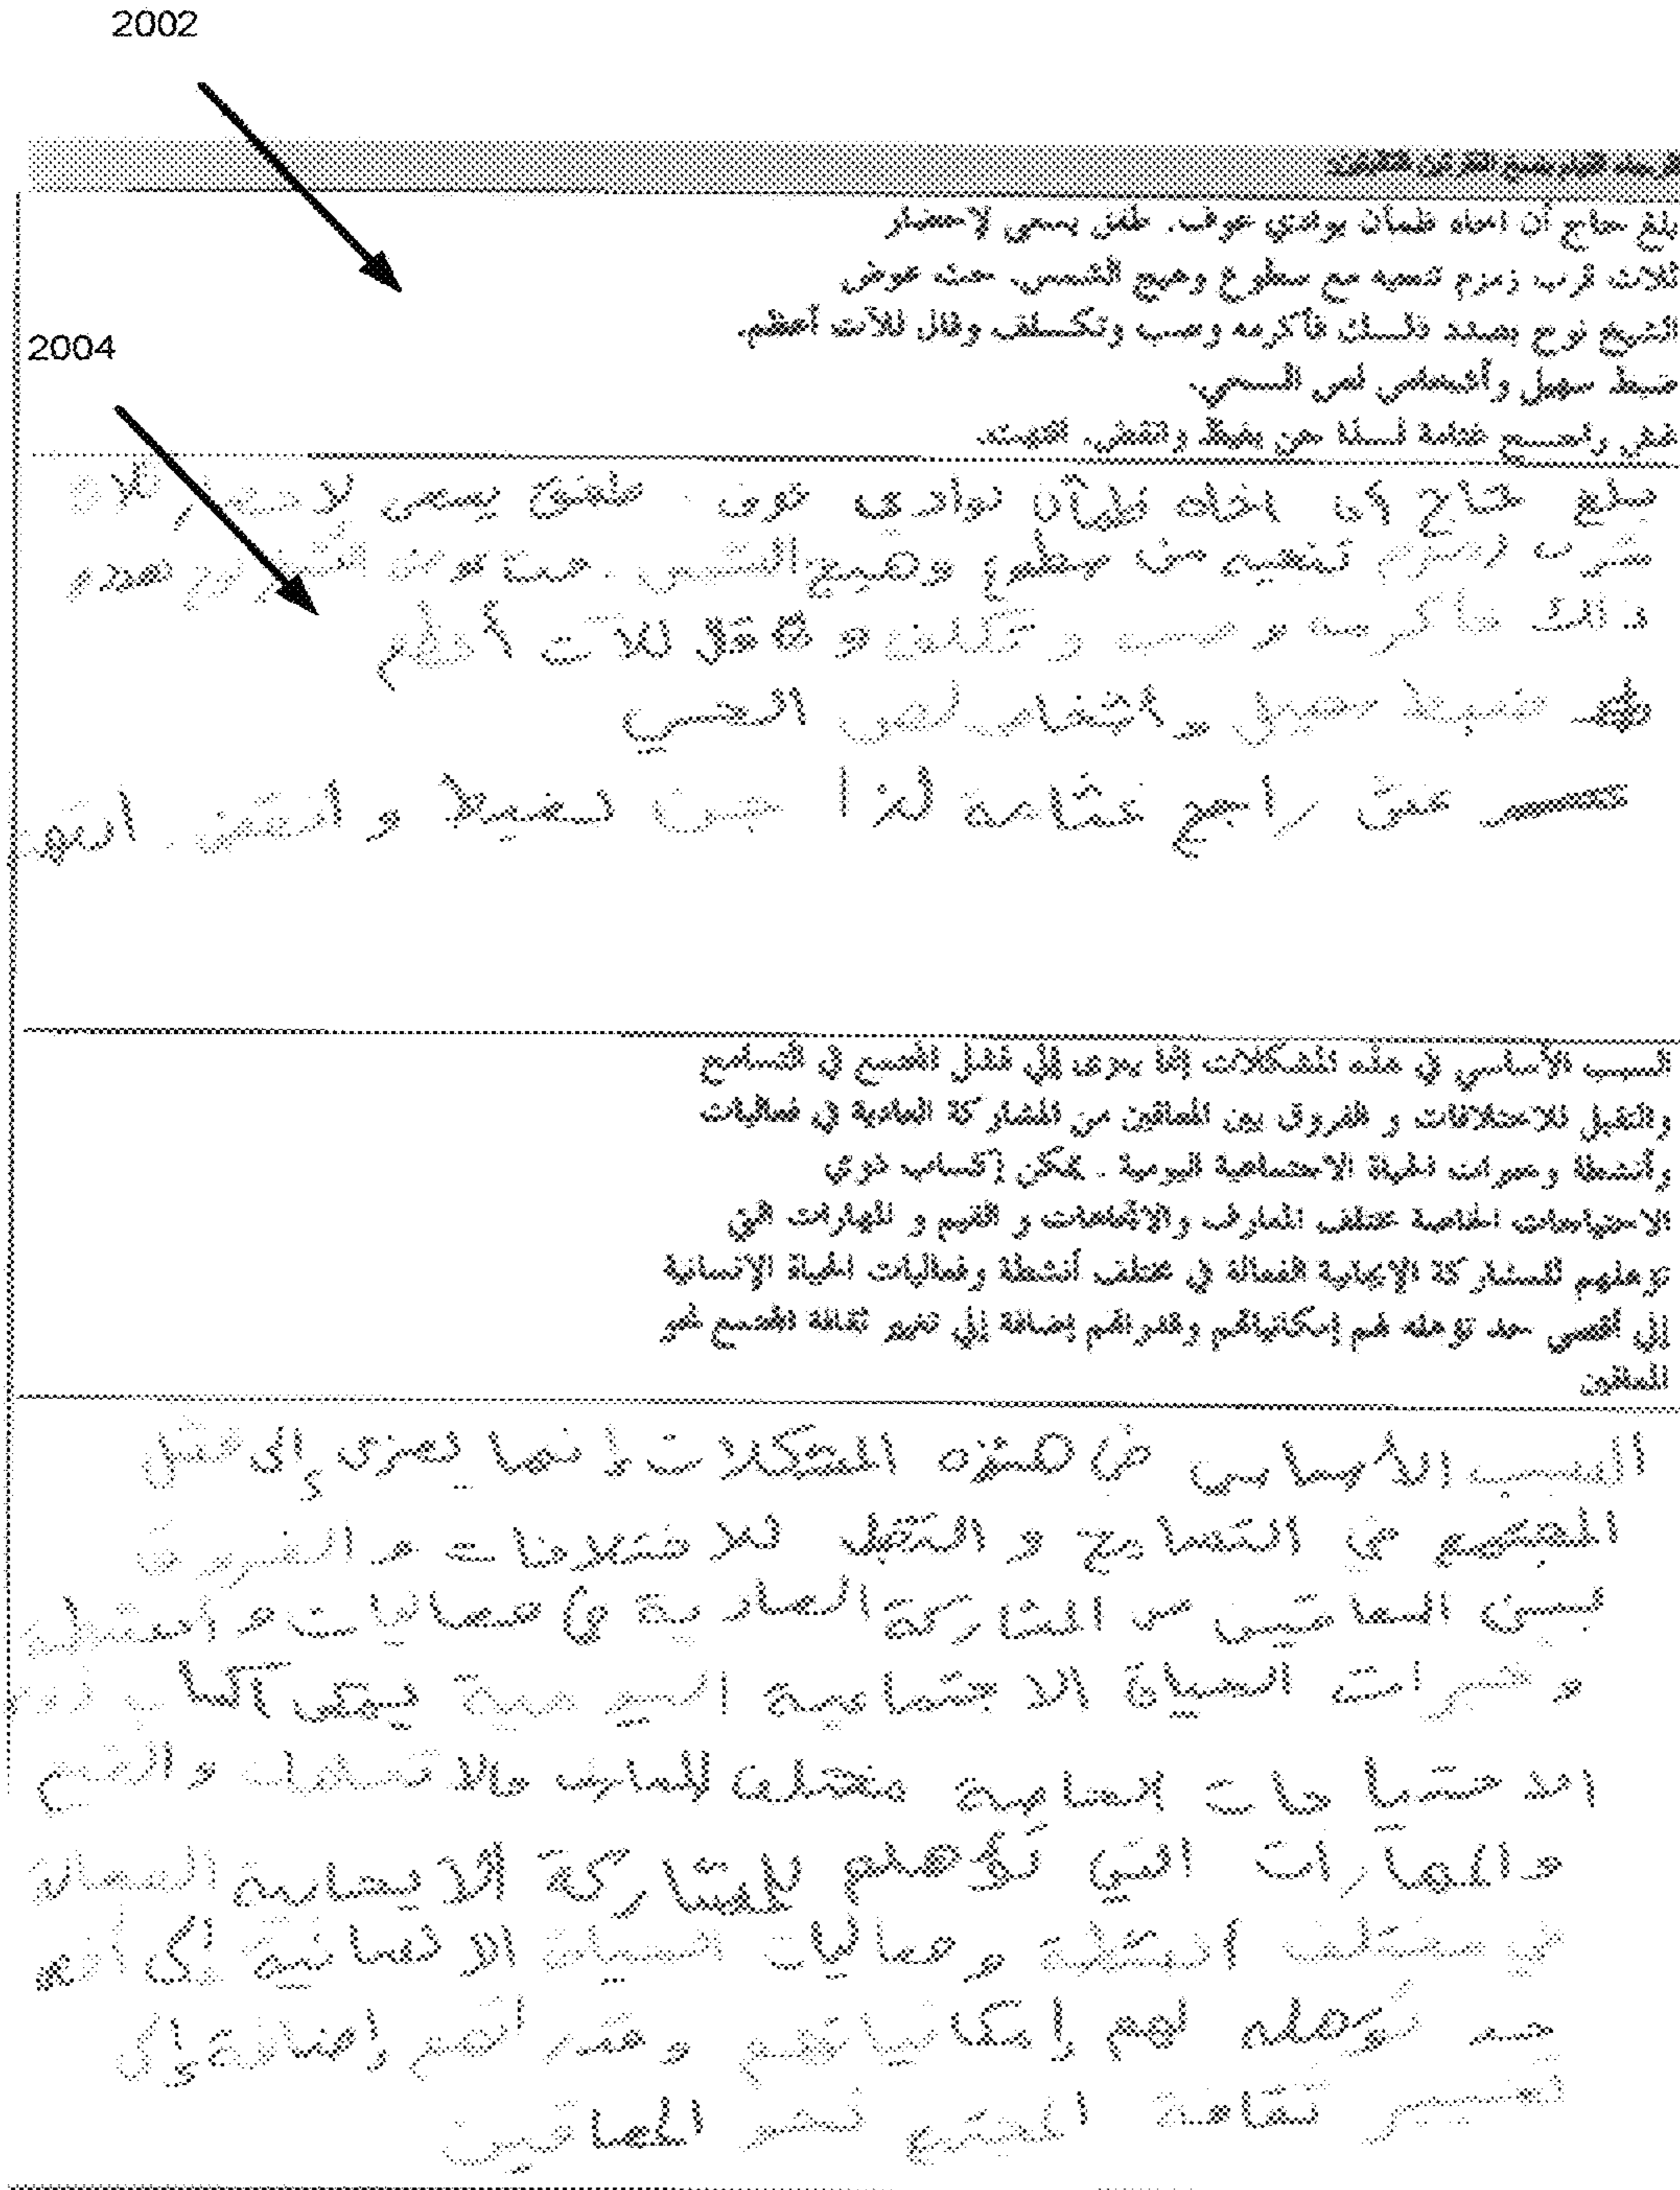 2002
الرجاء القيام بنسخ الفقرتين التاليتين:
بلغ حاج أن اخاه ظمآن بوادي عوف. طفق يسعى لإحضار
ثلاث قرب زمزم تنعيه مع سطوع وهيج الشمس. حث عوض
الشيخ نوح بصدد ذلك فأكرمه وصب وتكلف وقال للآت أعظم.
2004
ضبط سهيل وأضخاض لص السني.
غض راجح غثامة لذا حن بغيظ وانتفض. انتهت.
بلغ حاج أن اخاه ظمآن بوادي عوف. طفق يسعى لاحضار ثلاث
قرب زمزم تنعيه من سطوع وهيج الشمس. حث عوض الشيخ نوح بصدد
ذالك فأكرمه وصب وتكلف و قال للآت أعظم
ضبط سهيل و لص
راجح غثامة لذا و انتفض. انتهت
السبب الأساسي في هذه المشكلات إنما يعزى إلى فشل المجتمع في التسامح
والتقبل للاختلافات و الفروق بين المعاقين من المشاركة العادية في فعاليات
وأنشطة وخبرات الحياة الاجتماعية اليومية . يمكن إكساب ذوي
الاحتياجات الخاصة مختلف المعارف والاتجاهات و القيم و المهارات التي
تؤهلهم للمشاركة الإيجابية الفعالة في مختلف أنشطة وفعاليات الحياة الإنسانية
إلى أقصى حد تؤهله لهم إمكانياتهم وقدراتهم إضافة إلى تغيير ثقافة المجتمع نحو
المعاقون
السبب الأساسي في هذه المشكلات إنما يعزى إلى فشل
المجتمع في التسامح و التقبل للاختلافات و الفروق
بين المعاقين من المشاركة العادية في فعاليات و أنشطة
و خبرات الحياة الاجتماعية اليومية يمكن اكساب ذوي
الاحتياجات الخاصة مختلف المعارف والاتجاهات والقيم
والمهارات التي تؤهلهم للمشاركة الايجابية الفعالة
في مختلف أنشطة وفعاليات الحياة الانسانية إلى أقصى
حد تؤهله لهم إمكانياتهم وقدراتهم إضافة إلى
تغيير ثقافة المجتمع نحو المعاقين